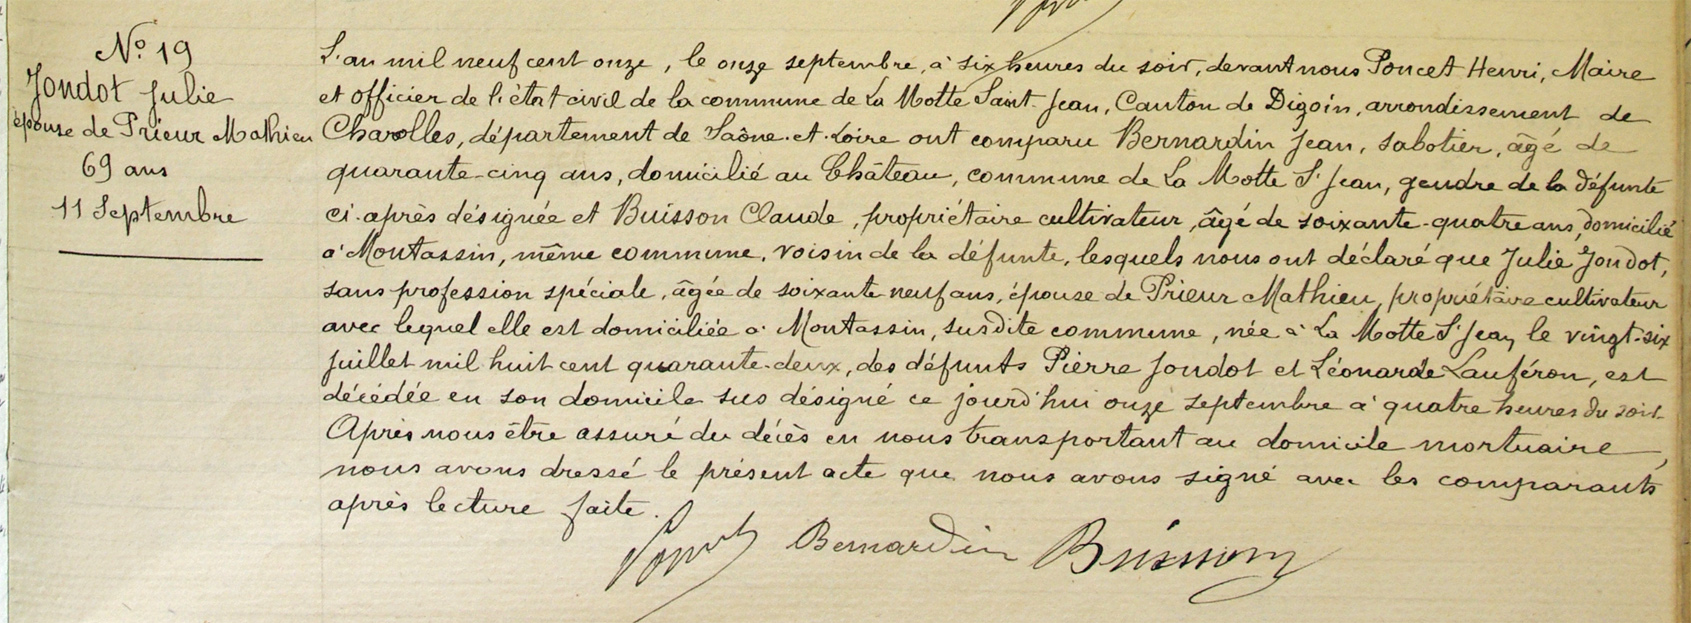 N° 19
Jondot Julie
épouse de Prieur Mathieu
69 ans
11 Septembre
L'an mil neuf cent onze, le onze septembre, à six heures du soir, devant nous Poncet Henri, Maire
et officier de l'état civil de la commune de La Motte Saint-Jean, Canton de Digoin, arrondissement de
Charolles, département de Saône-et-Loire ont comparu Bernardin Jean, sabotier, âgé de
quarante-cinq ans, domicilié au Château, commune de La Motte St Jean, gendre de la défunte
ci-après désignée et Buisson Claude, propriétaire cultivateur, âgé de soixante-quatre ans, domicilié
à Montassin, même commune, voisin de la défunte, lesquels nous ont déclaré que Julie Jondot,
sans profession spéciale, âgée de soixante neuf ans, épouse de Prieur Mathieu, propriétaire cultivateur
avec lequel elle est domiciliée à Montassin, susdite commune, née à La Motte St Jean, le vingt-six
juillet mil huit cent quarante-deux, des défunts Pierre Jondot et Léonarde Lauféron, est
décédée en son domicile sus désigné ce jourd'hui onze septembre à quatre heures du soir.
Après nous être assuré du décès en nous transportant au domicile mortuaire,
nous avons dressé le présent acte que nous avons signé avec les comparants
après lecture faite.
Poncet Bernardin Buisson